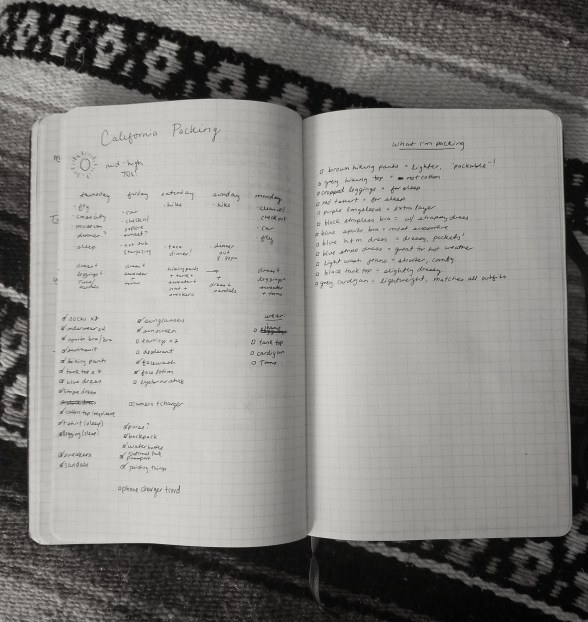 California Packing
mid-high
70s!
thursday friday saturday sunday monday
- fly
- car
- hike
- hike
- cleanup!
check out
- car
- fly
museum
dinner?
sleep
checkin!
explore
sunset?
- hot tub
stargazing
dinner!
dinner
out
dress +
leggings +
sandals
dress +
sweater
+
hiking pants
+ tank +
sweater +
sneakers
dress +
sandals
dress +
leggings +
sweater
+ toms
socks x7
underwear x8
sports bra/bra
swimsuit
hiking pants
tank top x4
blue dress
stripe dress
t-shirt (sleep)
legging (sleep)
sneakers
sandals
sunglasses
sunscreen
earrings x2
deodorant
facewash
face lotion
camera + charger
purse?
backpack
water bottle
national park
passport
painting things
phone charger + cord
wear
tank top
cardigan
Toms
What I'm packing
brown hiking pants - lighter, "packable"!
grey hiking top = not cotton
cropped leggings = for sleep
red tshirt = for sleep
purple longsleeve = extra layer
black strapless bra = w/ strappy dress
blue sports bra = most supportive
blue h+m dress = dressy, pockets!
blue stripe dress = great for hot weather
light wash jeans = stretchy, comfy
black tank top = slightly dressy
grey cardigan = lightweight, matches all outfits